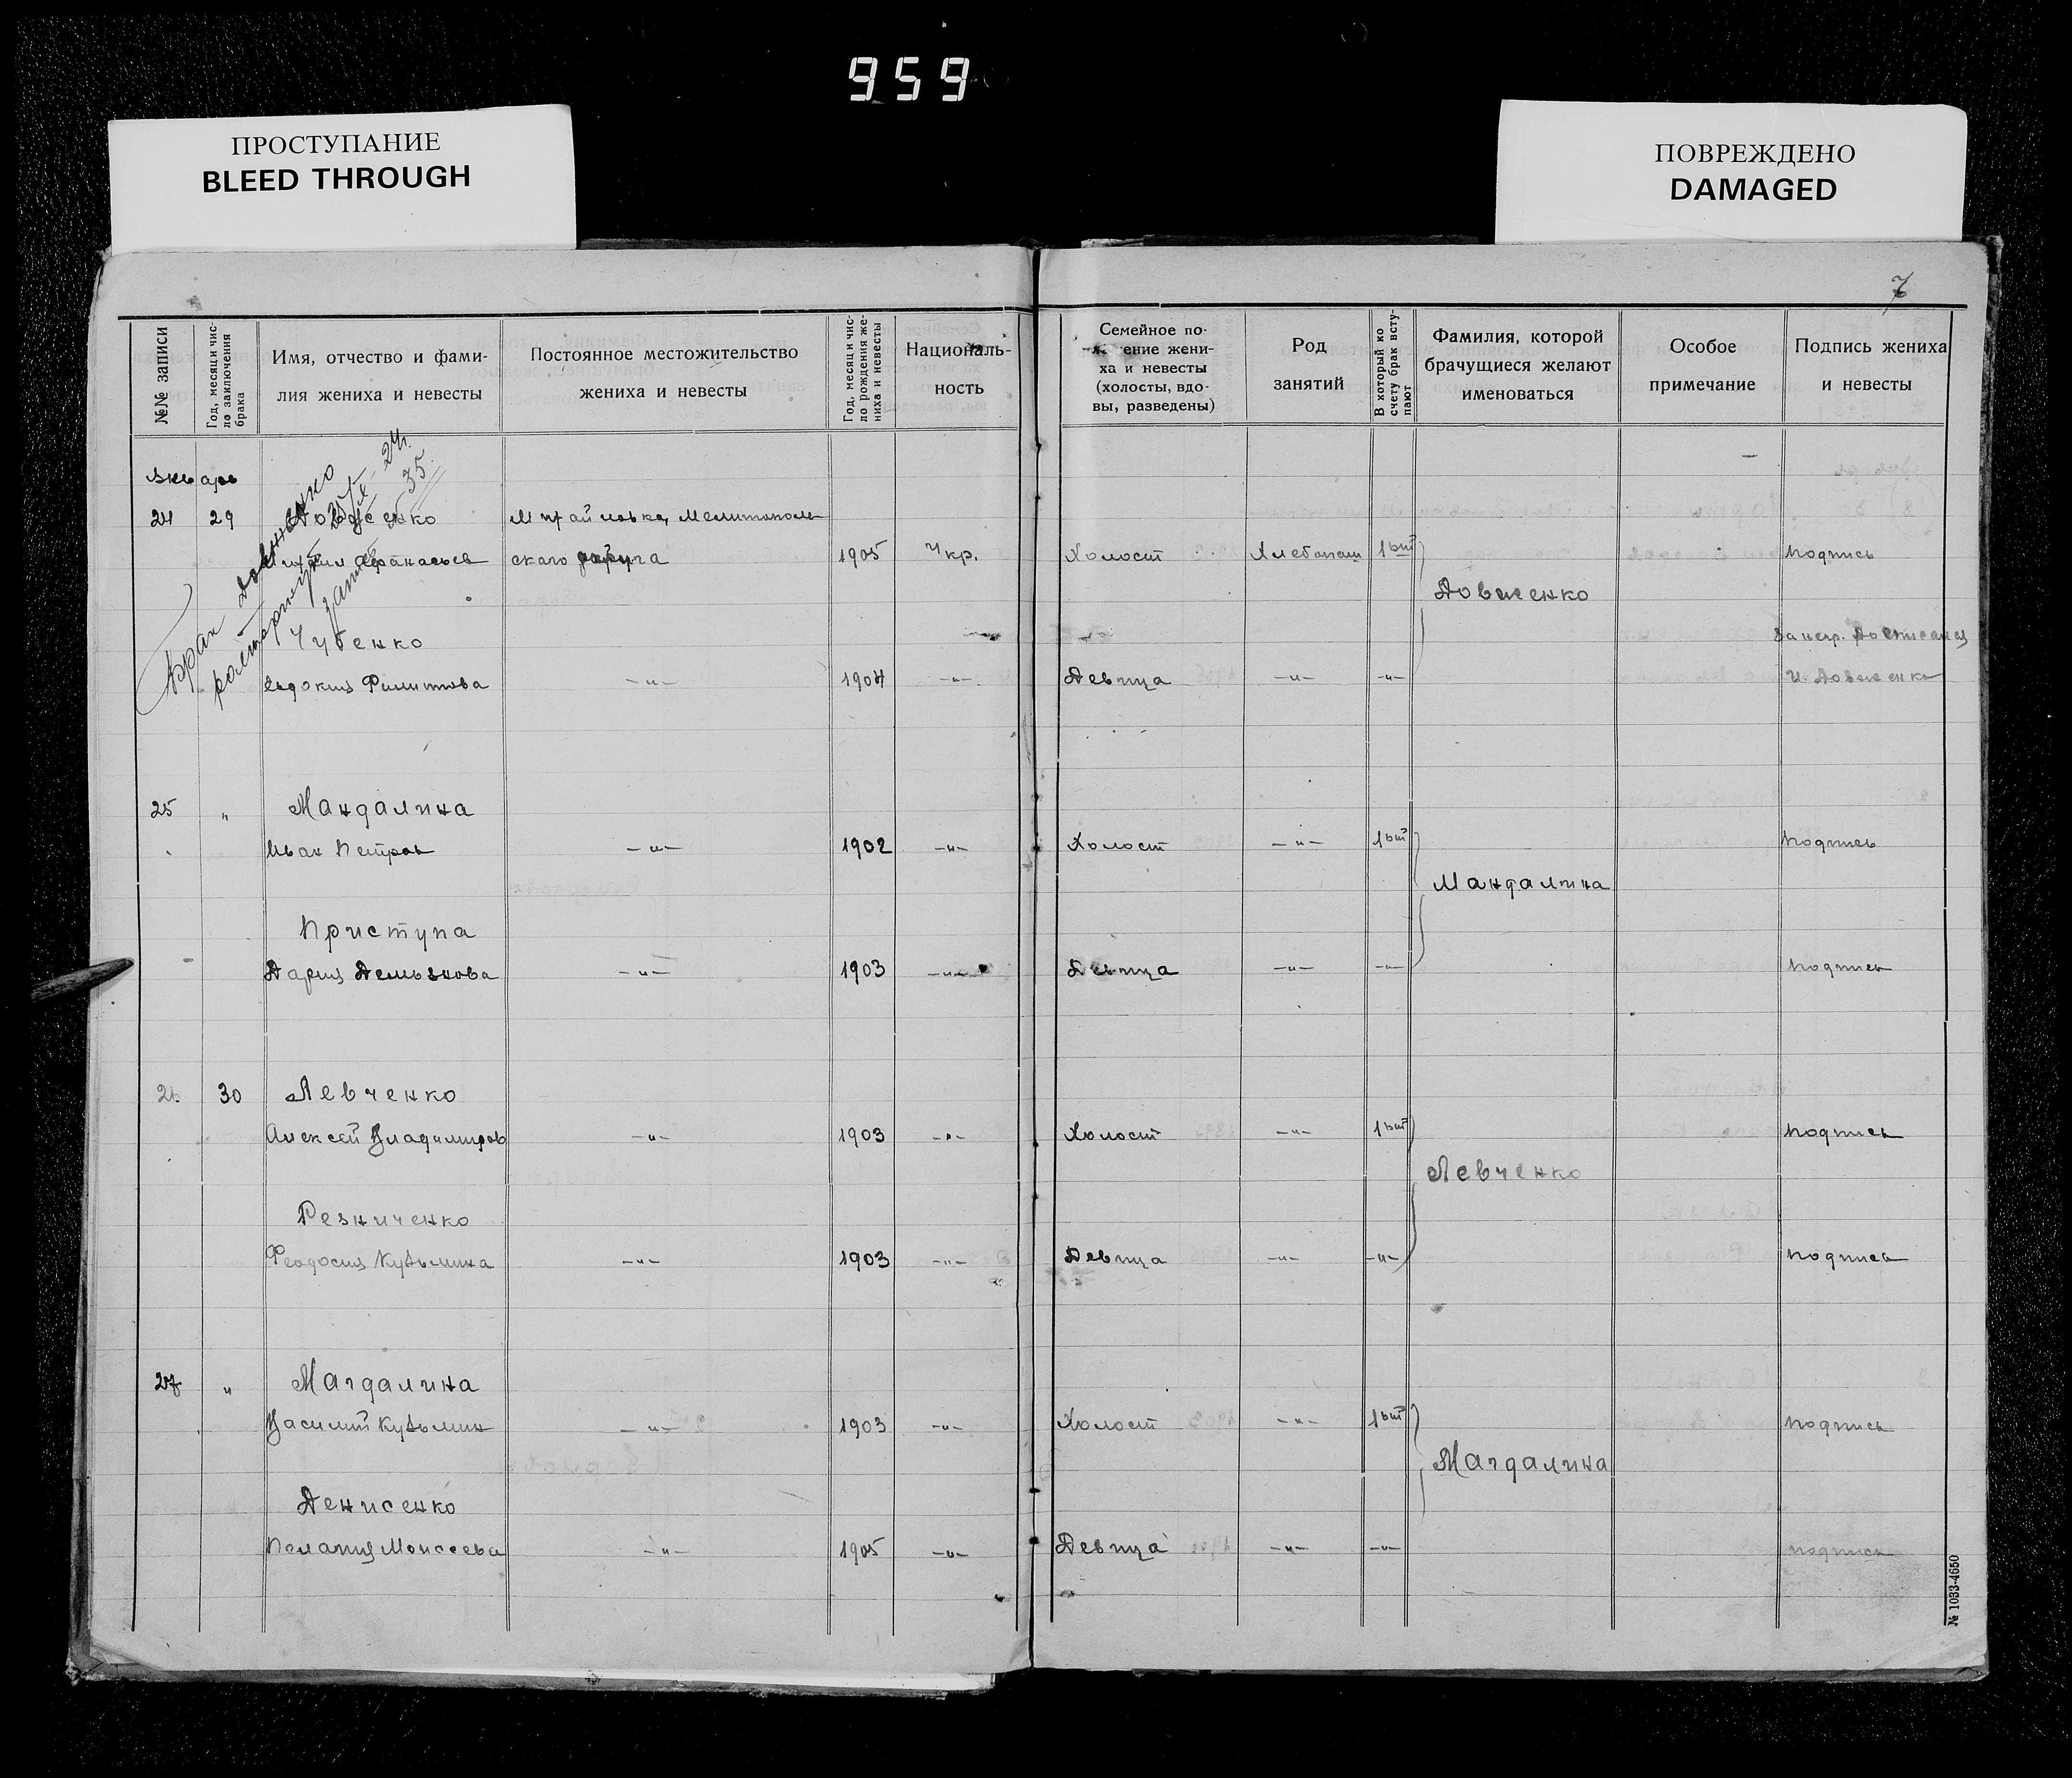 959
ПРОСТУПАНИЕ
BLEED THROUGH
ПОВРЕЖДЕНО
DAMAGED
7
№№ записи
Год, месяц и чис-
ло заключения
брака
Имя, отчество и фами-
лия жениха и невесты
Постоянное местожительство
жениха и невесты
Год, месяц и чис-
ло рождения же-
ниха и невесты
Националь-
ность
Семейное по-
ение жени-
ха и невесты
(холосты, вдо-
вы, разведены)
Род
занятий
В который ко
счету брак всту-
пают
Фамилия, которой
брачущиеся желают
именоваться
Особое
примечание
Подпись жениха
и невесты
Январь
24 29 Довженко Мелитополь-
Афанасьев ского округа 1905 Укр. Холост Хлебопаш 1ый подпись
Довженко
Брак Довженко
расторгнут
35
Чубенко
Евдокия Филиппова -„- 1904 -„- Девица -„- -„- Довженко
25 „ Мандалина
Иван Петров -„- 1902 -„- Холост -„- 1ый подпись
Мандалина
Приступа
Дария Демьянова -„- 1903 -„- Девица -„- -„- подпись
26 30 Левченко
Алексей Владимиров -„- 1903 -„- Холост -„- 1ый подпись
Левченко
Резниченко
Феодосия Кузьмина -„- 1903 -„- Девица -„- -„- подпись
27 „ Магдалина
Василий Кузьмин -„- 1903 -„- Холост -„- 1ый подпись
Магдалина
Денисенко
Пелагия Моисеева -„- 1905 -„- Девица -„- -„- подпись
№ 1033-4650